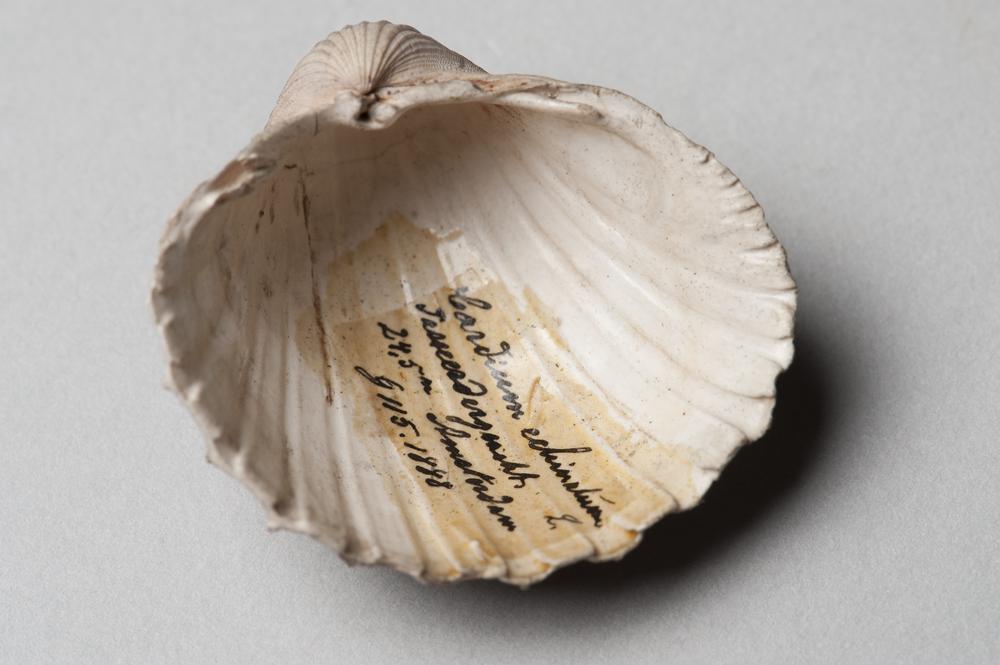 Cardium echinatum
L.
Tesselschegracht
24,5 m Amsterdam
G 115.1888